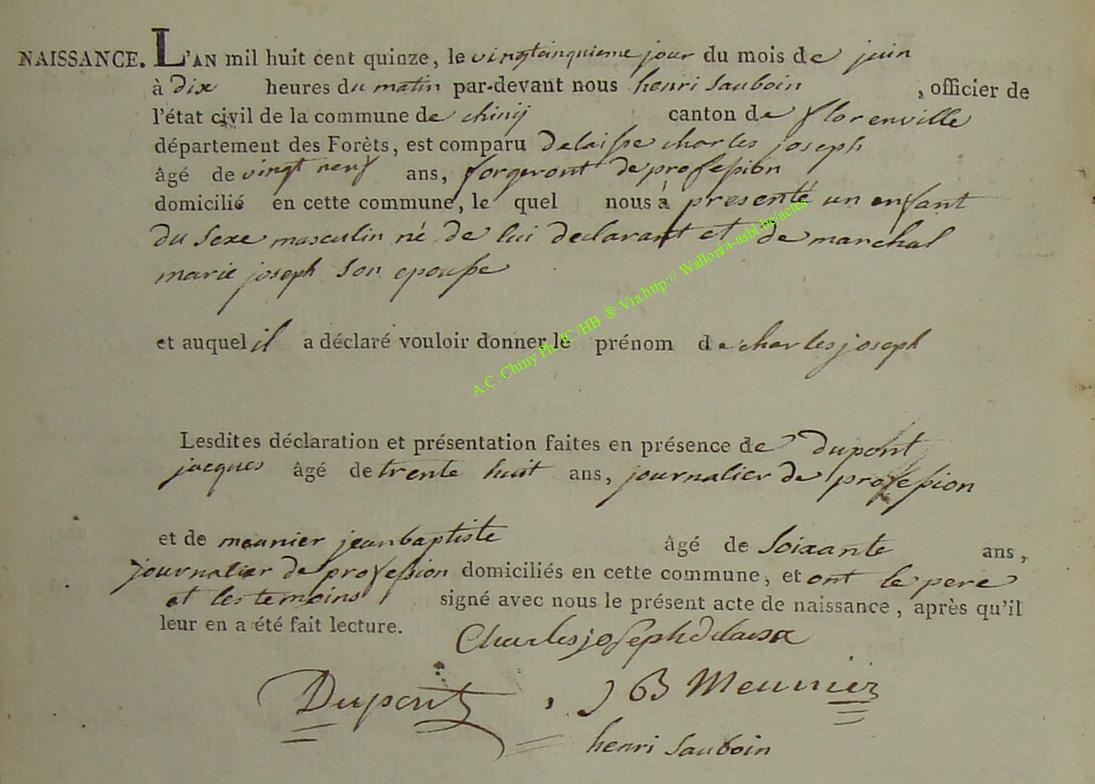 NAISSANCE. L'AN mil huit cent quinze, le vingtcinquieme jour du mois de juin
à dix heures du matin par-devant nous henri Sauboin , officier de
l'état civil de la commune de chinij canton de florenville
département des Forêts, est comparu delaisse charles joseph
âgé de vingt neuf ans, forgeront de profession
domicilié en cette commune, le quel nous à presenté un enfant
du sexe masculin né de lui declarant et de marchal
marie joseph son epouse
et auquel il a déclaré vouloir donner le prénom de charles joseph
A.C. Chiny Ph.JC/HB ® Via http:// Wallonia-asbl.be/actes
Lesdites déclaration et présentation faites en présence de dupont
jacques âgé de trente huit ans, journalier de profession
et de meunier jean baptiste âgé de soixante ans,
journalier de profession domiciliés en cette commune, et ont le pere
et les temoins signé avec nous le présent acte de naissance, après qu'il
leur en a été fait lecture.
Charles joseph delaisa
Dupont , J B Meunier
henri Sauboin